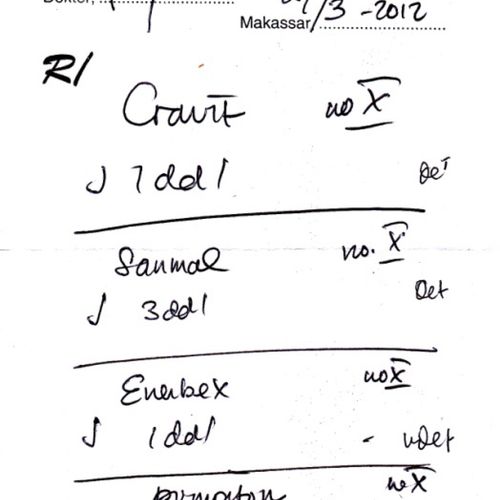 Makassar, /3 - 2012
R/
Cravit no X
ʃ 1dd1 Det
Sanmol no. X
ʃ 3dd1 Det
Enerbex no X
ʃ 1dd1 - ndet
no X